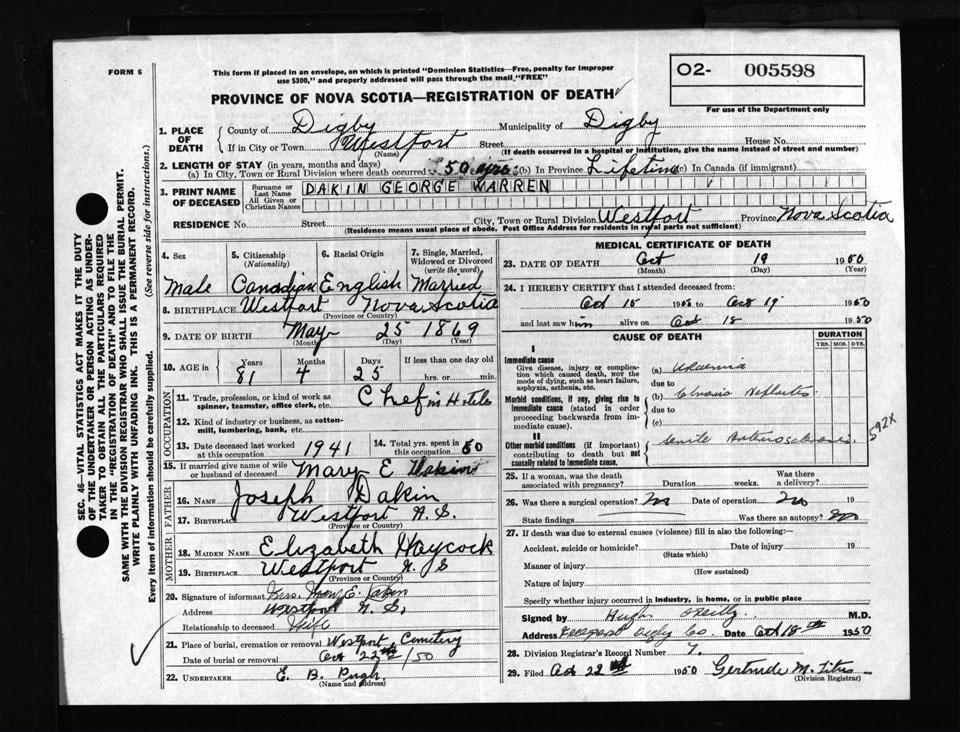 FORM 6
This form if placed in an envelope, on which is printed "Dominion Statistics—Free, penalty for improper
use $300," and properly addressed will pass through the mail "FREE"
O2- 005598
For use of the Department only
PROVINCE OF NOVA SCOTIA—REGISTRATION OF DEATH
1. PLACE OF DEATH
County of Digby Municipality of Digby
If in City or Town Westport Street House No.
(Name) (If death occurred in a hospital or institution, give the name instead of street and number)
2. LENGTH OF STAY (in years, months and days)
(a) In City, Town or Rural Division where death occurred 50 yrs (b) In Province Lifetime (c) In Canada (if immigrant)
3. PRINT NAME OF DECEASED
Surname or Last Name DAKIN GEORGE WARREN
All Given or Christian Names
RESIDENCE No. Street City, Town or Rural Division Westport Province Nova Scotia
(Residence means usual place of abode. Post Office Address for residents in rural parts not sufficient)
4. Sex
Male
5. Citizenship (Nationality)
Canadian
6. Racial Origin
English
7. Single, Married, Widowed or Divorced (write the word)
Married
8. BIRTHPLACE Westport Nova Scotia
(Province or Country)
9. DATE OF BIRTH May 25 1869
(Month) (Day) (Year)
10. AGE in Years Months Days If less than one day old
81 4 25 hrs. or min.
OCCUPATION
11. Trade, profession, or kind of work as
spinner, teamster, office clerk, etc. Chef in Hotels
12. Kind of industry or business, as cotton-
mill, lumbering, bank, etc.
13. Date deceased last worked at this occupation 1941
14. Total yrs. spent in this occupation 50
15. If married give name of wife or husband of deceased Mary E Dakin
FATHER
16. NAME Joseph Dakin
17. BIRTHPLACE Westport N. S.
(Province or Country)
MOTHER
18. MAIDEN NAME Elizabeth Haycock
19. BIRTHPLACE Westport N. S
(Province or Country)
20. Signature of informant Mrs. E. Dakin
Address Westport N. S.
Relationship to deceased Wife
21. Place of burial, cremation or removal Westport Cemetery
Date of burial or removal Oct 22nd/50
22. UNDERTAKER E. B. Pugh
(Name and address)
MEDICAL CERTIFICATE OF DEATH
23. DATE OF DEATH Oct 19 1950
(Month) (Day) (Year)
24. I HEREBY CERTIFY that I attended deceased from:
Oct 15 1950 to Oct 19 1950
and last saw him alive on Oct 18 1950
CAUSE OF DEATH
DURATION
YRS. MOS. DYS.
I
Immediate cause
Give disease, injury or complica-
tion which caused death, not the
mode of dying, such as heart failure,
asphyxia, asthenia, etc.
(a) Uraemia
due to
Morbid conditions, if any, giving rise to
immediate cause (stated in order
proceeding backwards from im-
mediate cause).
(b) Chronic Nephritis
due to
(c)
II
Other morbid conditions (if important)
contributing to death but not
causally related to immediate cause.
Senile Arteriosclerosis
592X
25. If a woman, was the death associated with pregnancy? Duration weeks. Was there a delivery?
26. Was there a surgical operation? No Date of operation No 19
State findings Was there an autopsy? No
27. If death was due to external causes (violence) fill in also following:
Accident, suicide or homicide? Date of injury 19
(State which)
Manner of injury
(How sustained)
Nature of injury
Specify whether injury occurred in industry, in home, or in public place
Signed by Hugh M.D.
Address Digby Co. Date Oct 18th 1950
28. Division Registrar's Record Number 7.
29. Filed Oct 22nd 1950 Gertrude M. Titus
(Division Registrar)
SEC. 46—VITAL STATISTICS ACT MAKES IT THE DUTY
OF THE UNDERTAKER OR PERSON ACTING AS UNDER-
TAKER TO OBTAIN ALL THE PARTICULARS REQUIRED
IN THE "REGISTRATION OF DEATH" AND TO FILE THE
SAME WITH THE DIVISION REGISTRAR WHO SHALL ISSUE THE BURIAL PERMIT.
WRITE PLAINLY WITH UNFADING INK. THIS IS A PERMANENT RECORD.
Every item of information should be carefully supplied. (See reverse side for instructions.)